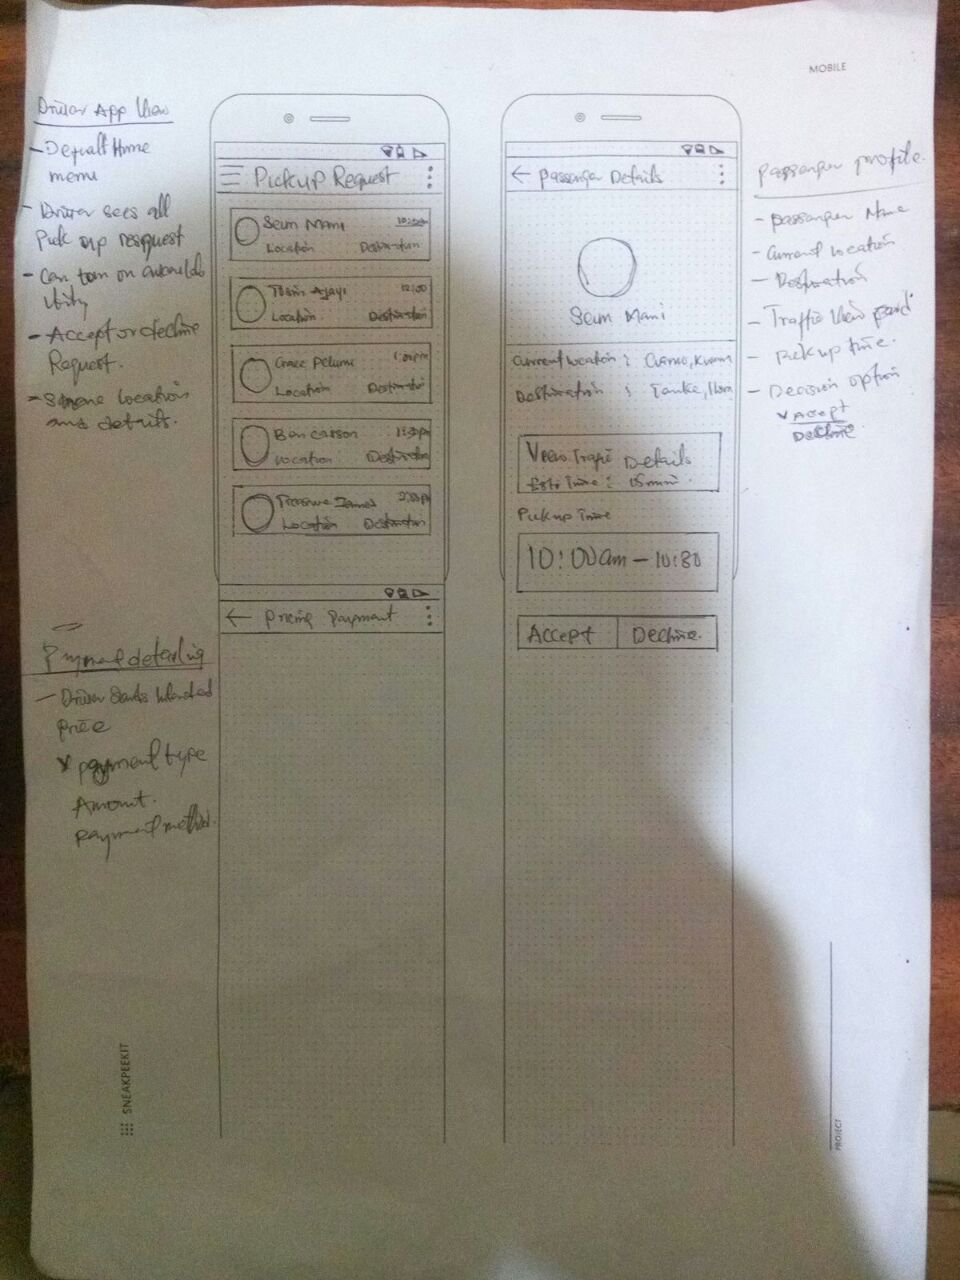 MOBILE
Driver App View
- Default Home
menu
- Driver sees all
Pick up resquest
- Can turn on
- Accept or decline
Request.
- location
and details.
Pickup Request
Seun Mani 10:00am
Location Destination
Tosin Ajayi 12:00
Location Destination
Grace Pelumi 1:00pm
Location Destination
Ben Carson 1:30pm
Location Destination
Treasure James
Location Destination
Pricing Payment
Payment detailing
- Driver Sends
price
payment type
Amount.
payment method.
Passenger Details
Seun Mani
Current Location :
Destination : Tanke,
View Trafic Details
Time : 15min.
Pickup time
10:00am - 10:30
Accept Decline.
Passenger profile.
- passenger Name
- Current Location
- Destination
- Traffic View
- Pick up time.
- Decision option
Accept
Decline
SNEAKPEEKIT
PROJECT